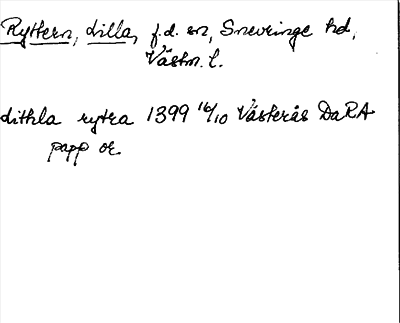 Ryttern, Lilla, f.d. sn, Snevringe hd,
Västm. l.
Lithla rytra 1399 16/10 Västerås DaRA
papp or.